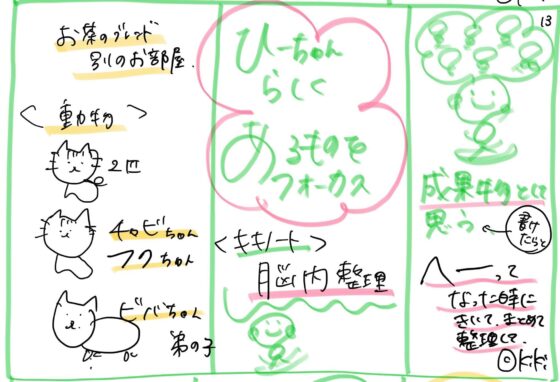 お茶のブレンド
別のお部屋.
<動物>
2匹
チャビちゃん
フクちゃん
ビバちゃん
弟の子
ひーちゃん
らしく
あるものを
フォーカス
<キキノート>
脳内整理
13
成果物として
思う
書けたらと
へーって
なった時に
きいて、まとめて
整理して.
©キキ